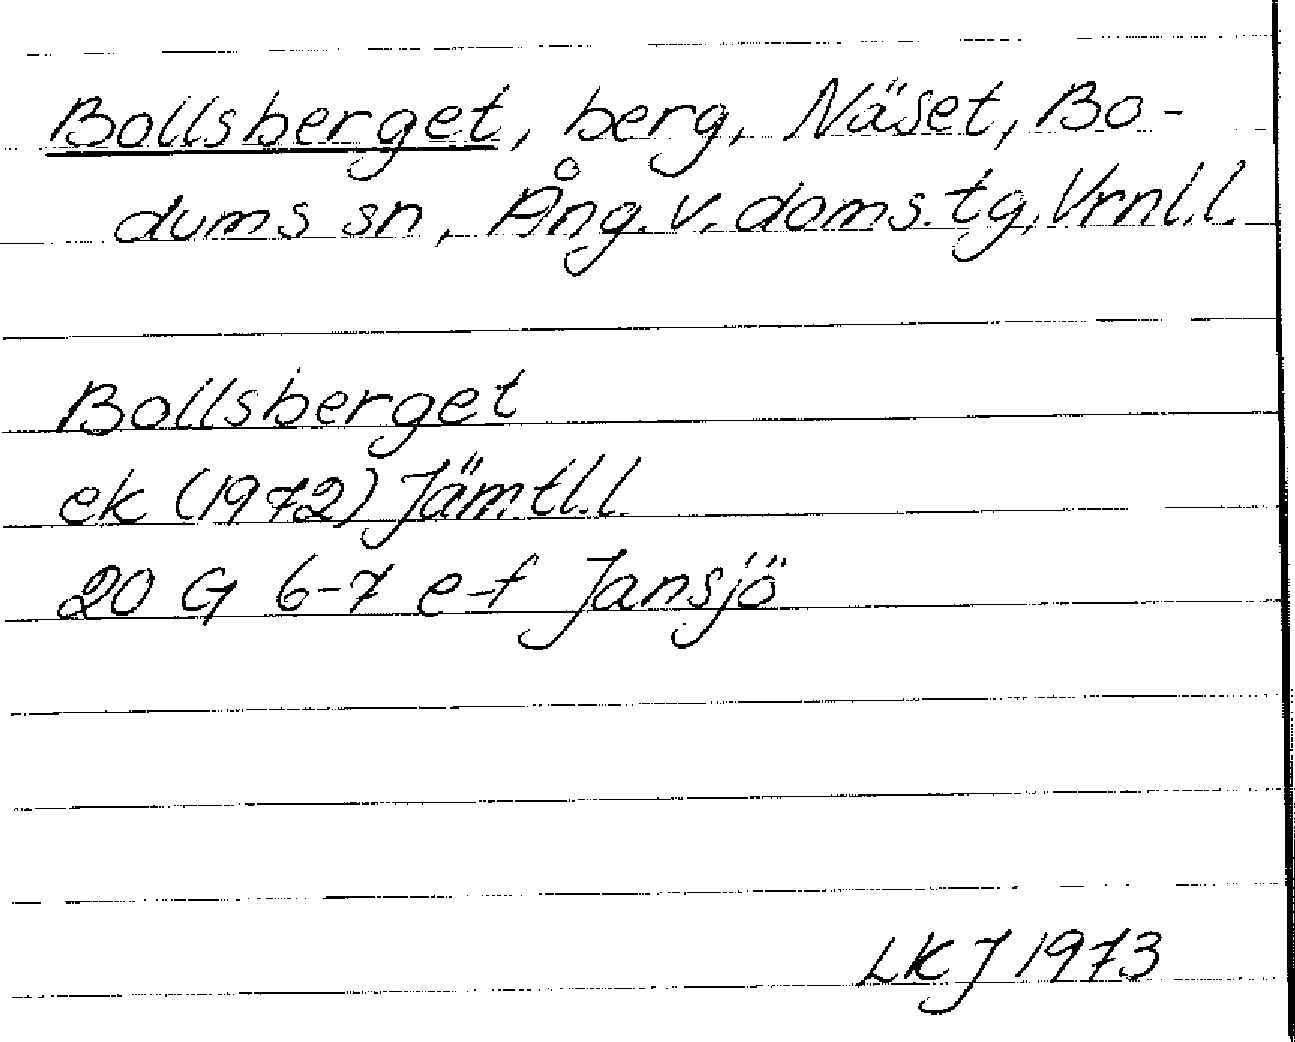 Bollsberget, berg, Näset, Bo-
dums sn, Ång. v. doms. tg, Vrnl. l.
Bollsberget
ek (1972) Jämtl. l.
20 G 6-7 e-f Jansjö
LKJ 1973